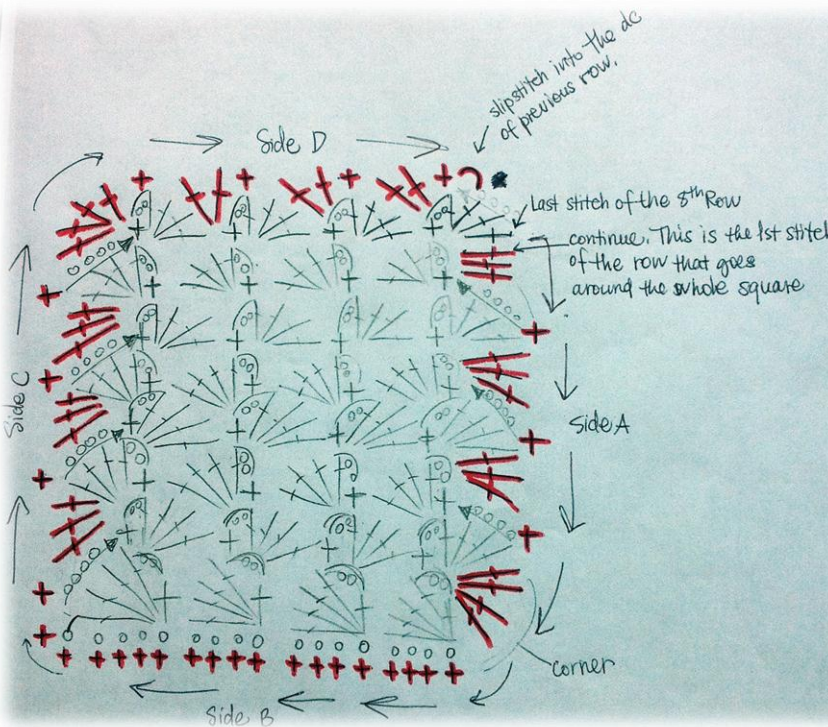 slipstitch into the dc
of previous row.
Side D
Last stitch of the 8th Row
continue. This is the 1st stitch
of the row that goes
around the whole square
Side C
Side A
corner
Side B